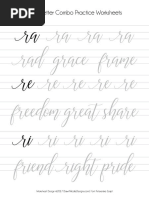 Letter Combo Practice Worksheets
ra ra ra ra ra
rad grace frame
re re re re re
freedom great share
ri ri ri ri ri
friend right pride